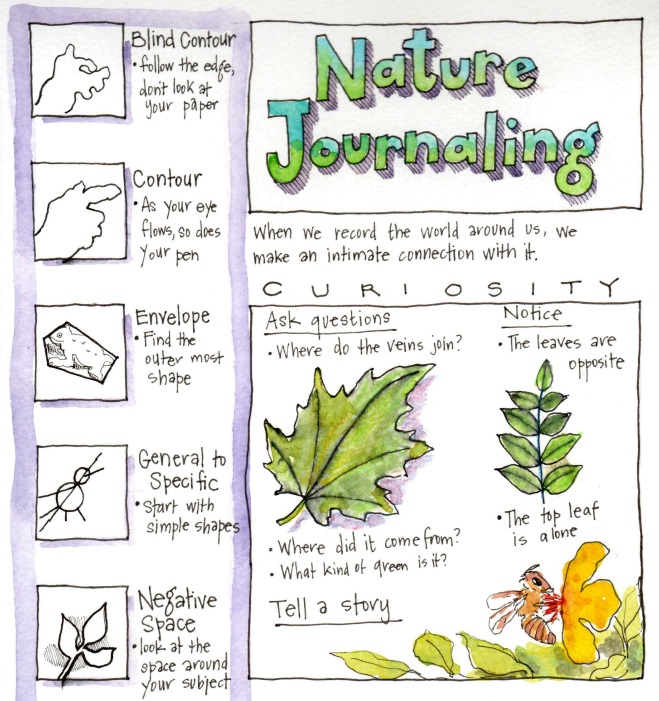 Blind Contour
• follow the edge,
don't look at
your paper
Contour
• As your eye
flows, so does
your pen
Envelope
• Find the
outer most
shape
General to
Specific
• Start with
simple shapes
Negative
Space
• look at the
space around
your subject
Nature
Journaling
When we record the world around us, we
make an intimate connection with it.
CURIOSITY
Ask questions
• Where do the veins join?
• Where did it come from?
• What kind of green is it?
Tell a story
Notice
• The leaves are
opposite
• The top leaf
is alone